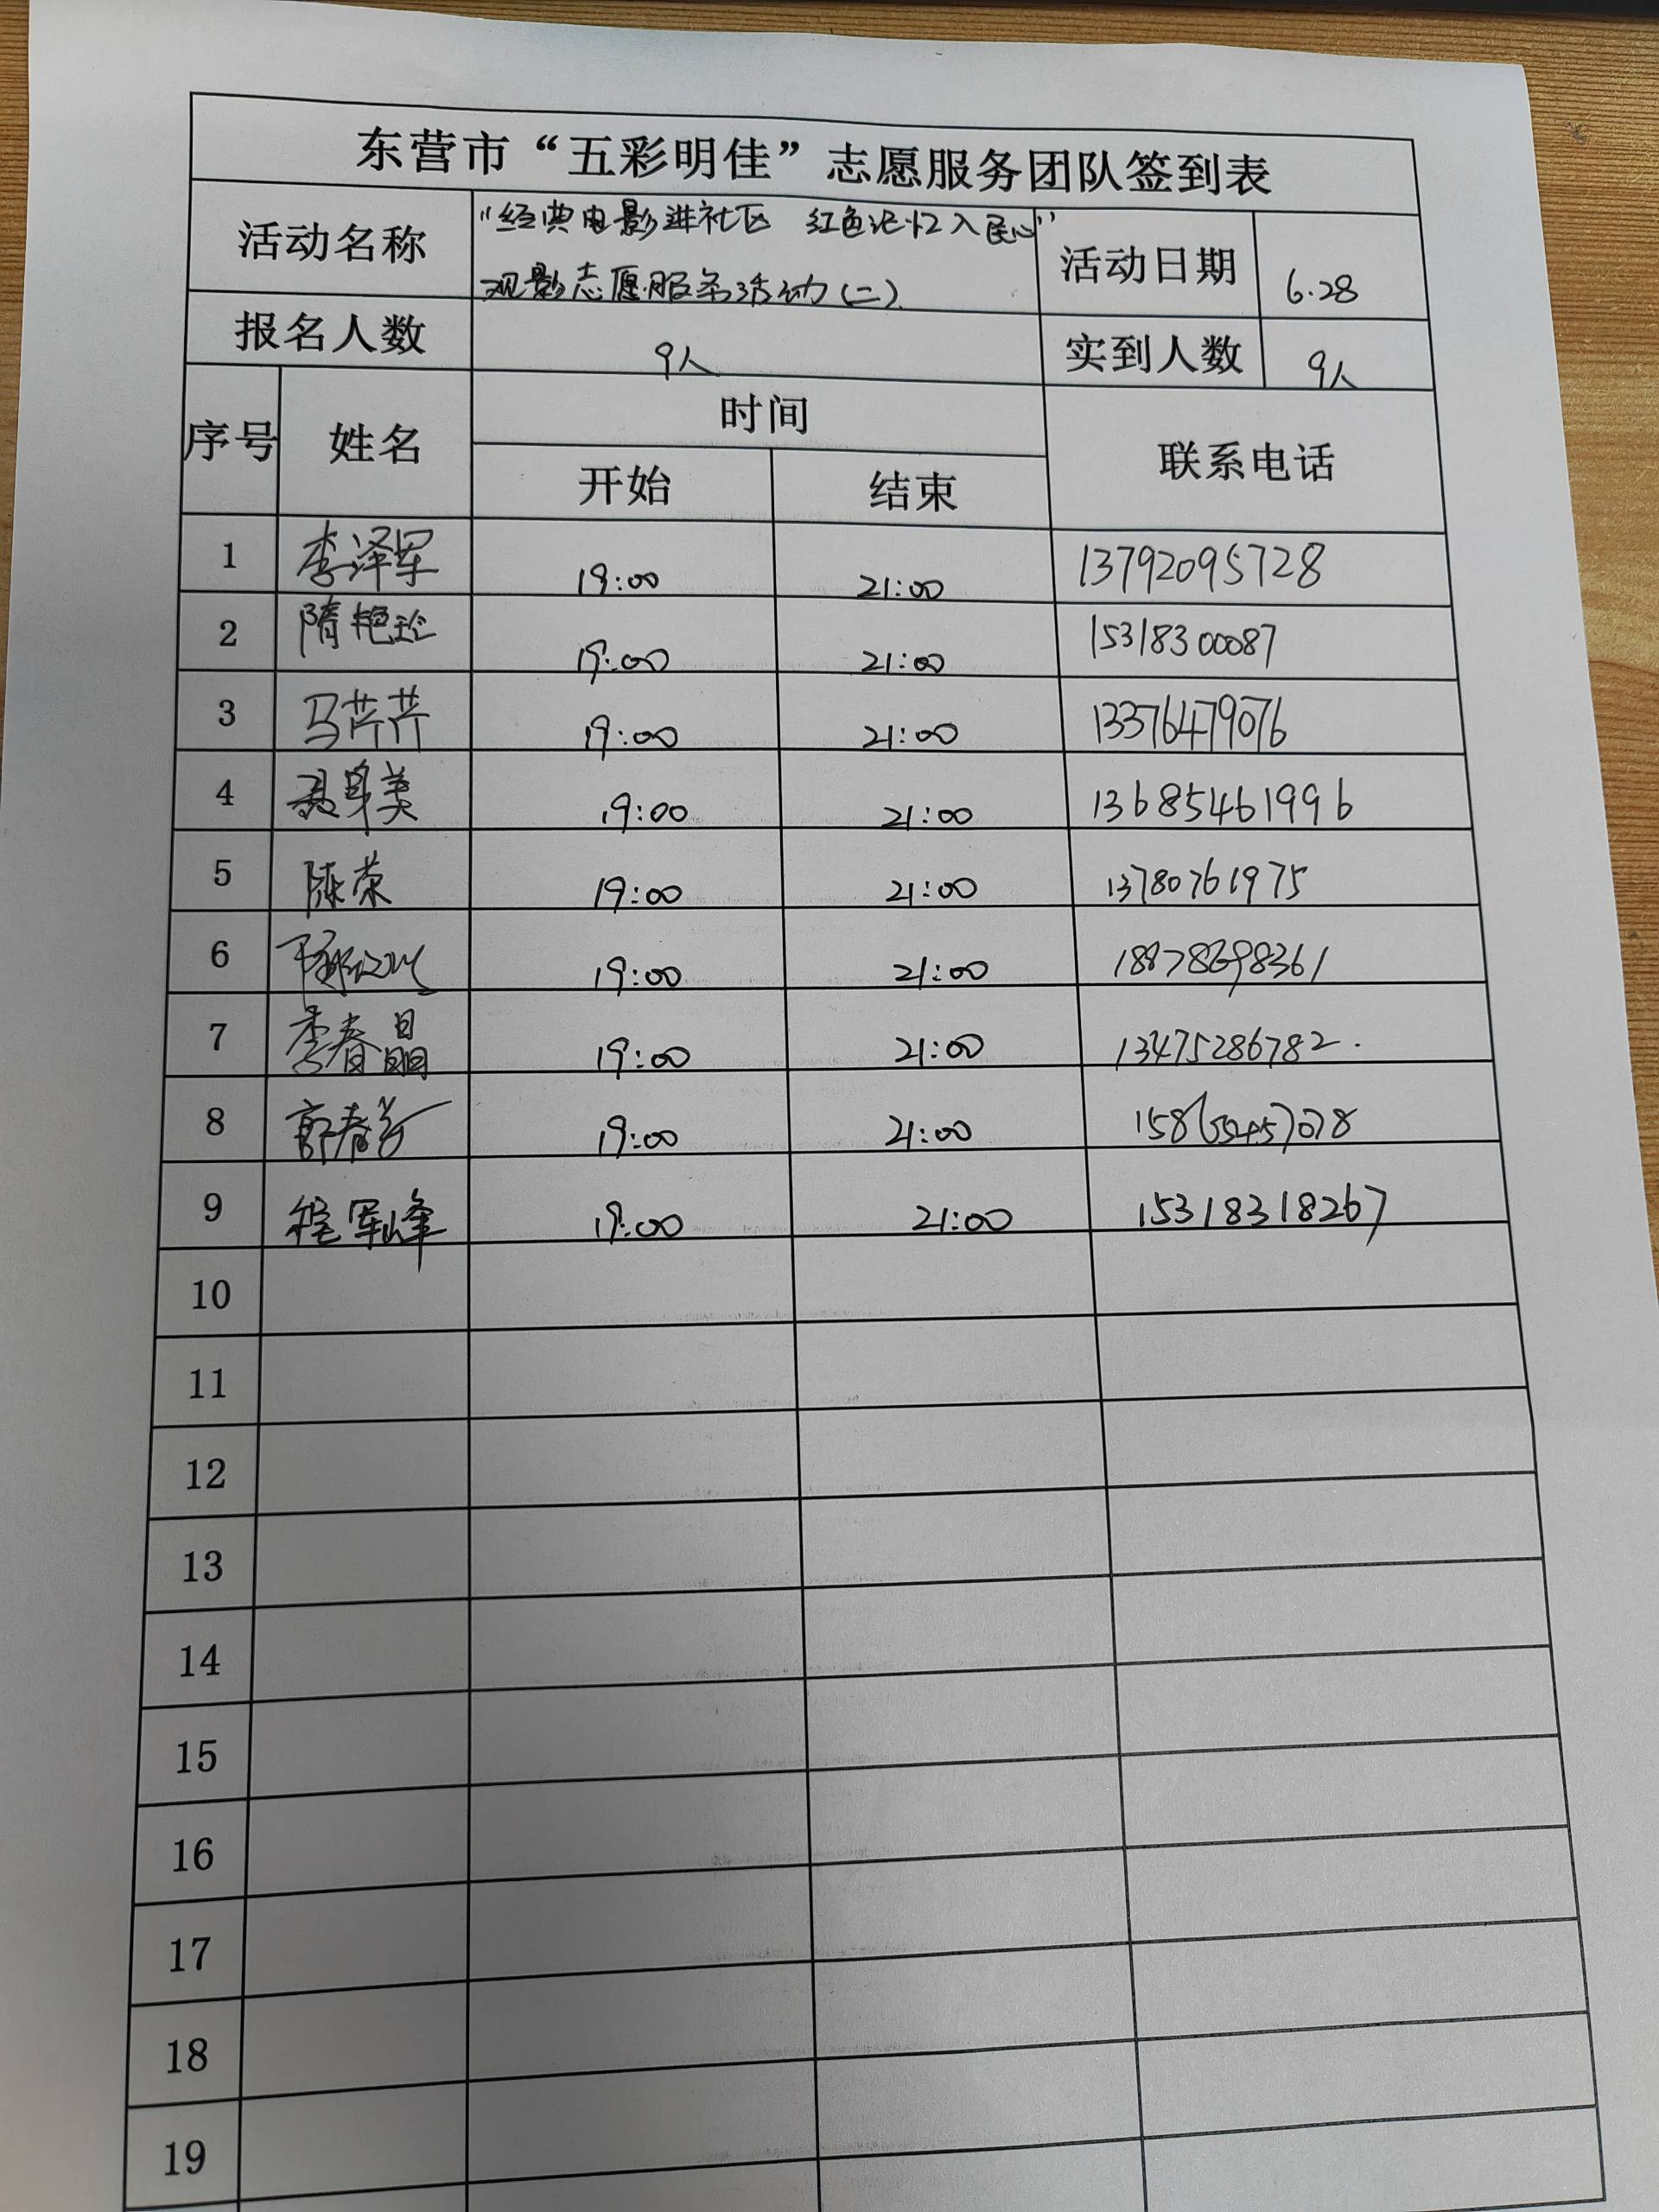 东营市“五彩明佳”志愿服务团队签到表
活动名称 “经典电影进社区 红色记忆入民心” 活动日期 6.28
观影志愿服务活动(二)
报名人数 9人 实到人数 9人
序号 姓名 时间 联系电话
开始 结束
1 李泽军 19:00 21:00 13792095728
2 隋艳玲 19:00 21:00 15318300087
3 马芹芹 19:00 21:00 13376479076
4 19:00 21:00 13685461996
5 陈荣 19:00 21:00 13780761975
6 19:00 21:00
7 李春晶 19:00 21:00 13475286782.
8 郭春芳 19:00 21:00
9 程军峰 19:00 21:00 15318318267
10
11
12
13
14
15
16
17
18
19